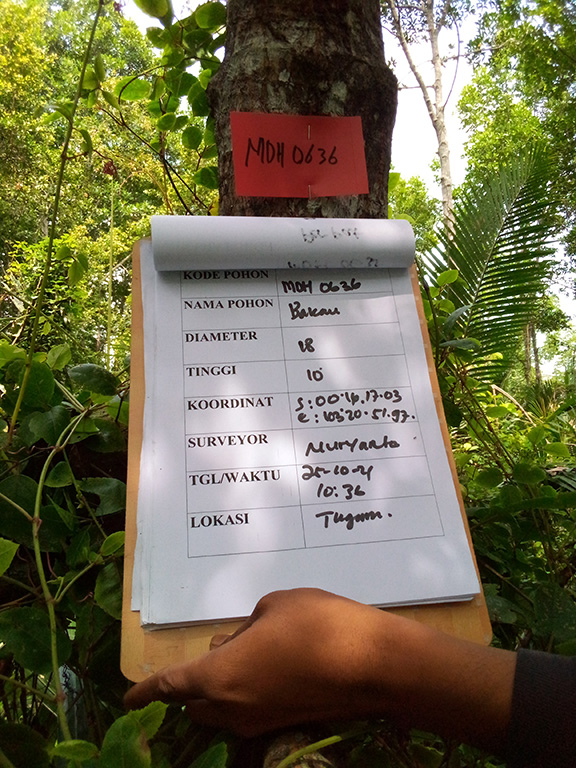 MDH 0636
KODE POHON MDH 0636
NAMA POHON Bakau
DIAMETER 18
TINGGI 10
KOORDINAT S : 00.14.17.03
E : 103.20.51.97.
SURVEYOR Nuryanto
TGL/WAKTU 25-10-21
10:36
LOKASI